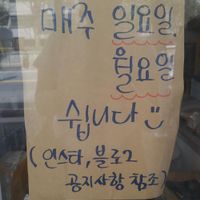 매주 일요일,
월요일
쉽니다
(인스타, 블로그
공지사항 참조)